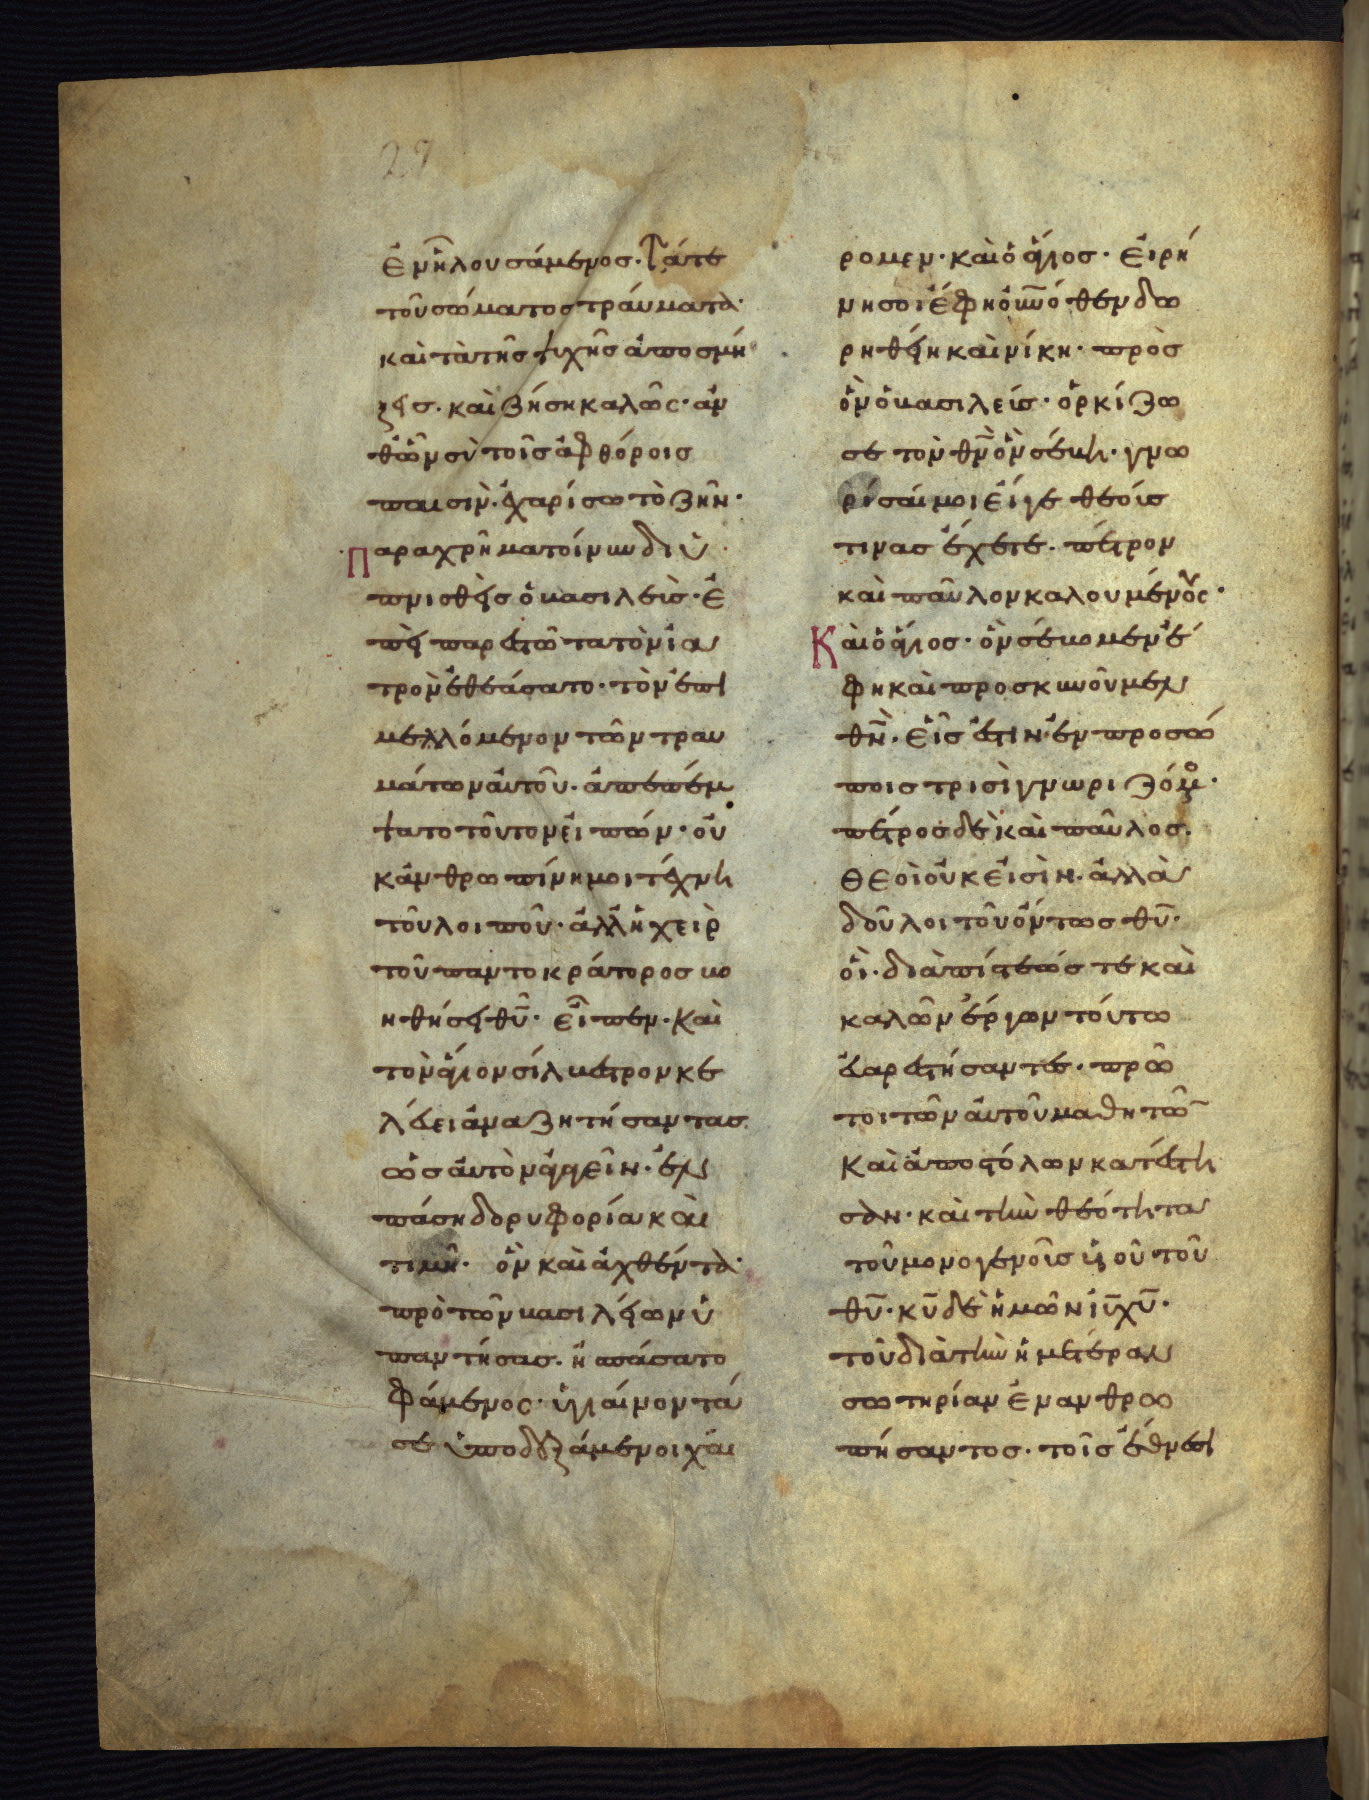 29
ἐν ᾗ λουσάμενος. τά τε
τοῦ σώματος τραύματα·
καὶ τὰ τῆς ψυχῆς ἀποσμή
ξεις. καὶ ζήση καλῶς. ἀν
θῶν σὺ τοῖς ἀφθόροις
παισὶν. ἐχαρίσω τὸ ζῆν.
Παραχρῆμα τοίνυν διϋ
πνισθεὶς ὁ βασιλεὺς. ἐ
πεὶ παρεστῶτα τὸν ἰα
τρὸν ἐθεάσατο. τὸν ἐπι
μελλόμενον τῶν τραυ
μάτων αὐτοῦ. ἀπεπέμ
ψατο τοῦτον εἰπών. οὐ
κ ἀνθρωπίνη μοι τέχνη
τοῦ λοιποῦ. ἀλλ' ἡ χεὶρ
τοῦ παντοκράτορος βο
ηθήσει θῦ. εἶπεν. καὶ
τὸν ἅγιον σίλβεστρον κε
λεύει ἀναζητήσαντας
ὡς αὐτὸν ἀγαγεῖν. ἐν
πάση δορυφορία καὶ
τιμῇ. ὃν καὶ ἀχθέντα·
πρὸ τῶν βασιλείων ὑ
παντήσας. ἠσπάσατο
φάμενος. ὑγιαίνοντά
σε ὑποδεξάμενοι χαί
ρομεν. καὶ ὁ ἅγιος. εἰρή
νη σοι ἔφη οὐνόθεν δω
ρηθείη καὶ νίκη. πρὸς
ὃν ὁ βασιλεύς. ὁρκίζω
σε τὸν θν ὃν σέβη. γνω
ρίσαί μοι εἴγε θεούς
τινας ἔχετε. πέτρον
καὶ παῦλον καλουμένους.
Καὶ ὁ ἅγιος. ὃν σέβομεν ἔ
φη καὶ προσκυνοῦμεν
θν. εἷς ἐστιν. ἐν προσώ
ποις τρισὶ γνωριζόμενος.
πέτρος δὲ καὶ παῦλος.
θεοὶ οὐκ εἰσὶν. ἀλλὰ
δοῦλοι τοῦ ὄντως θῦ.
οἳ. διὰ πίστεώς τε καὶ
καλῶν ἔργων τούτω
εὐαρεστήσαντες. πρῶ
τοι τῶν αὐτοῦ μαθητῶν
καὶ ἀποστόλων κατέστη
σαν. καὶ τὴν θεότητα
τοῦ μονογενοῦς υἱοῦ τοῦ
θῦ. κῦ δὲ ἡμῶν ἰῦ χῦ.
τοῦ διὰ τὴν ἡμετέραν
σωτηρίαν ἐνανθρω
πήσαντος. τοῖς ἔθνεσι